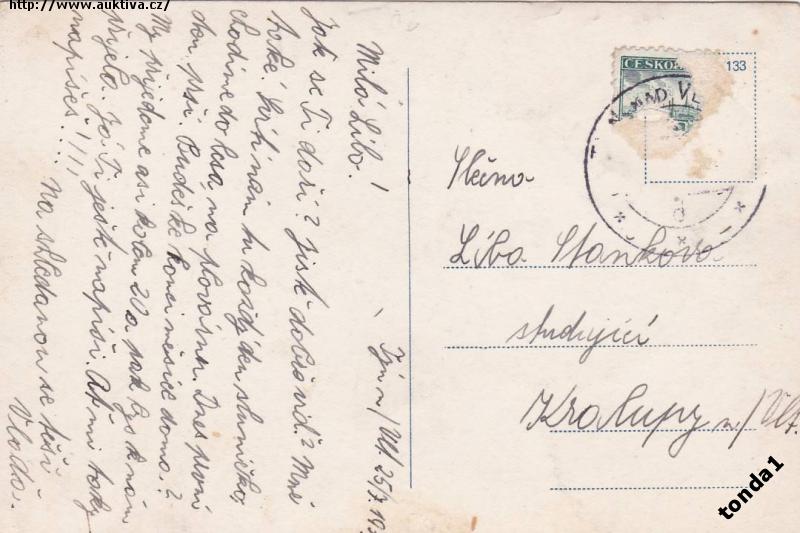 http://www.auktiva.cz/
Milá Líbo!
Jak se Ti daří? Jistě dobře viď? Mně
také. Svítí nám tu každý den sluníčko,
chodíme do lesa, na plovárnu. Dnes první
den prší. Budeš ke konci měsíce doma?
My přijedeme asi kolem 20 a. pak bys k nám
přijela. Já Ti ještě napíši. Ať mi taky
napíšeš!!!, Na shledanou se těší
Vláďa.
Týn n/Vlt. 25/7 19
ČESKO
133
TÝN NAD VL
Slečna
Líba Staňková
studující
Kralupy n/Vlt.
tonda1